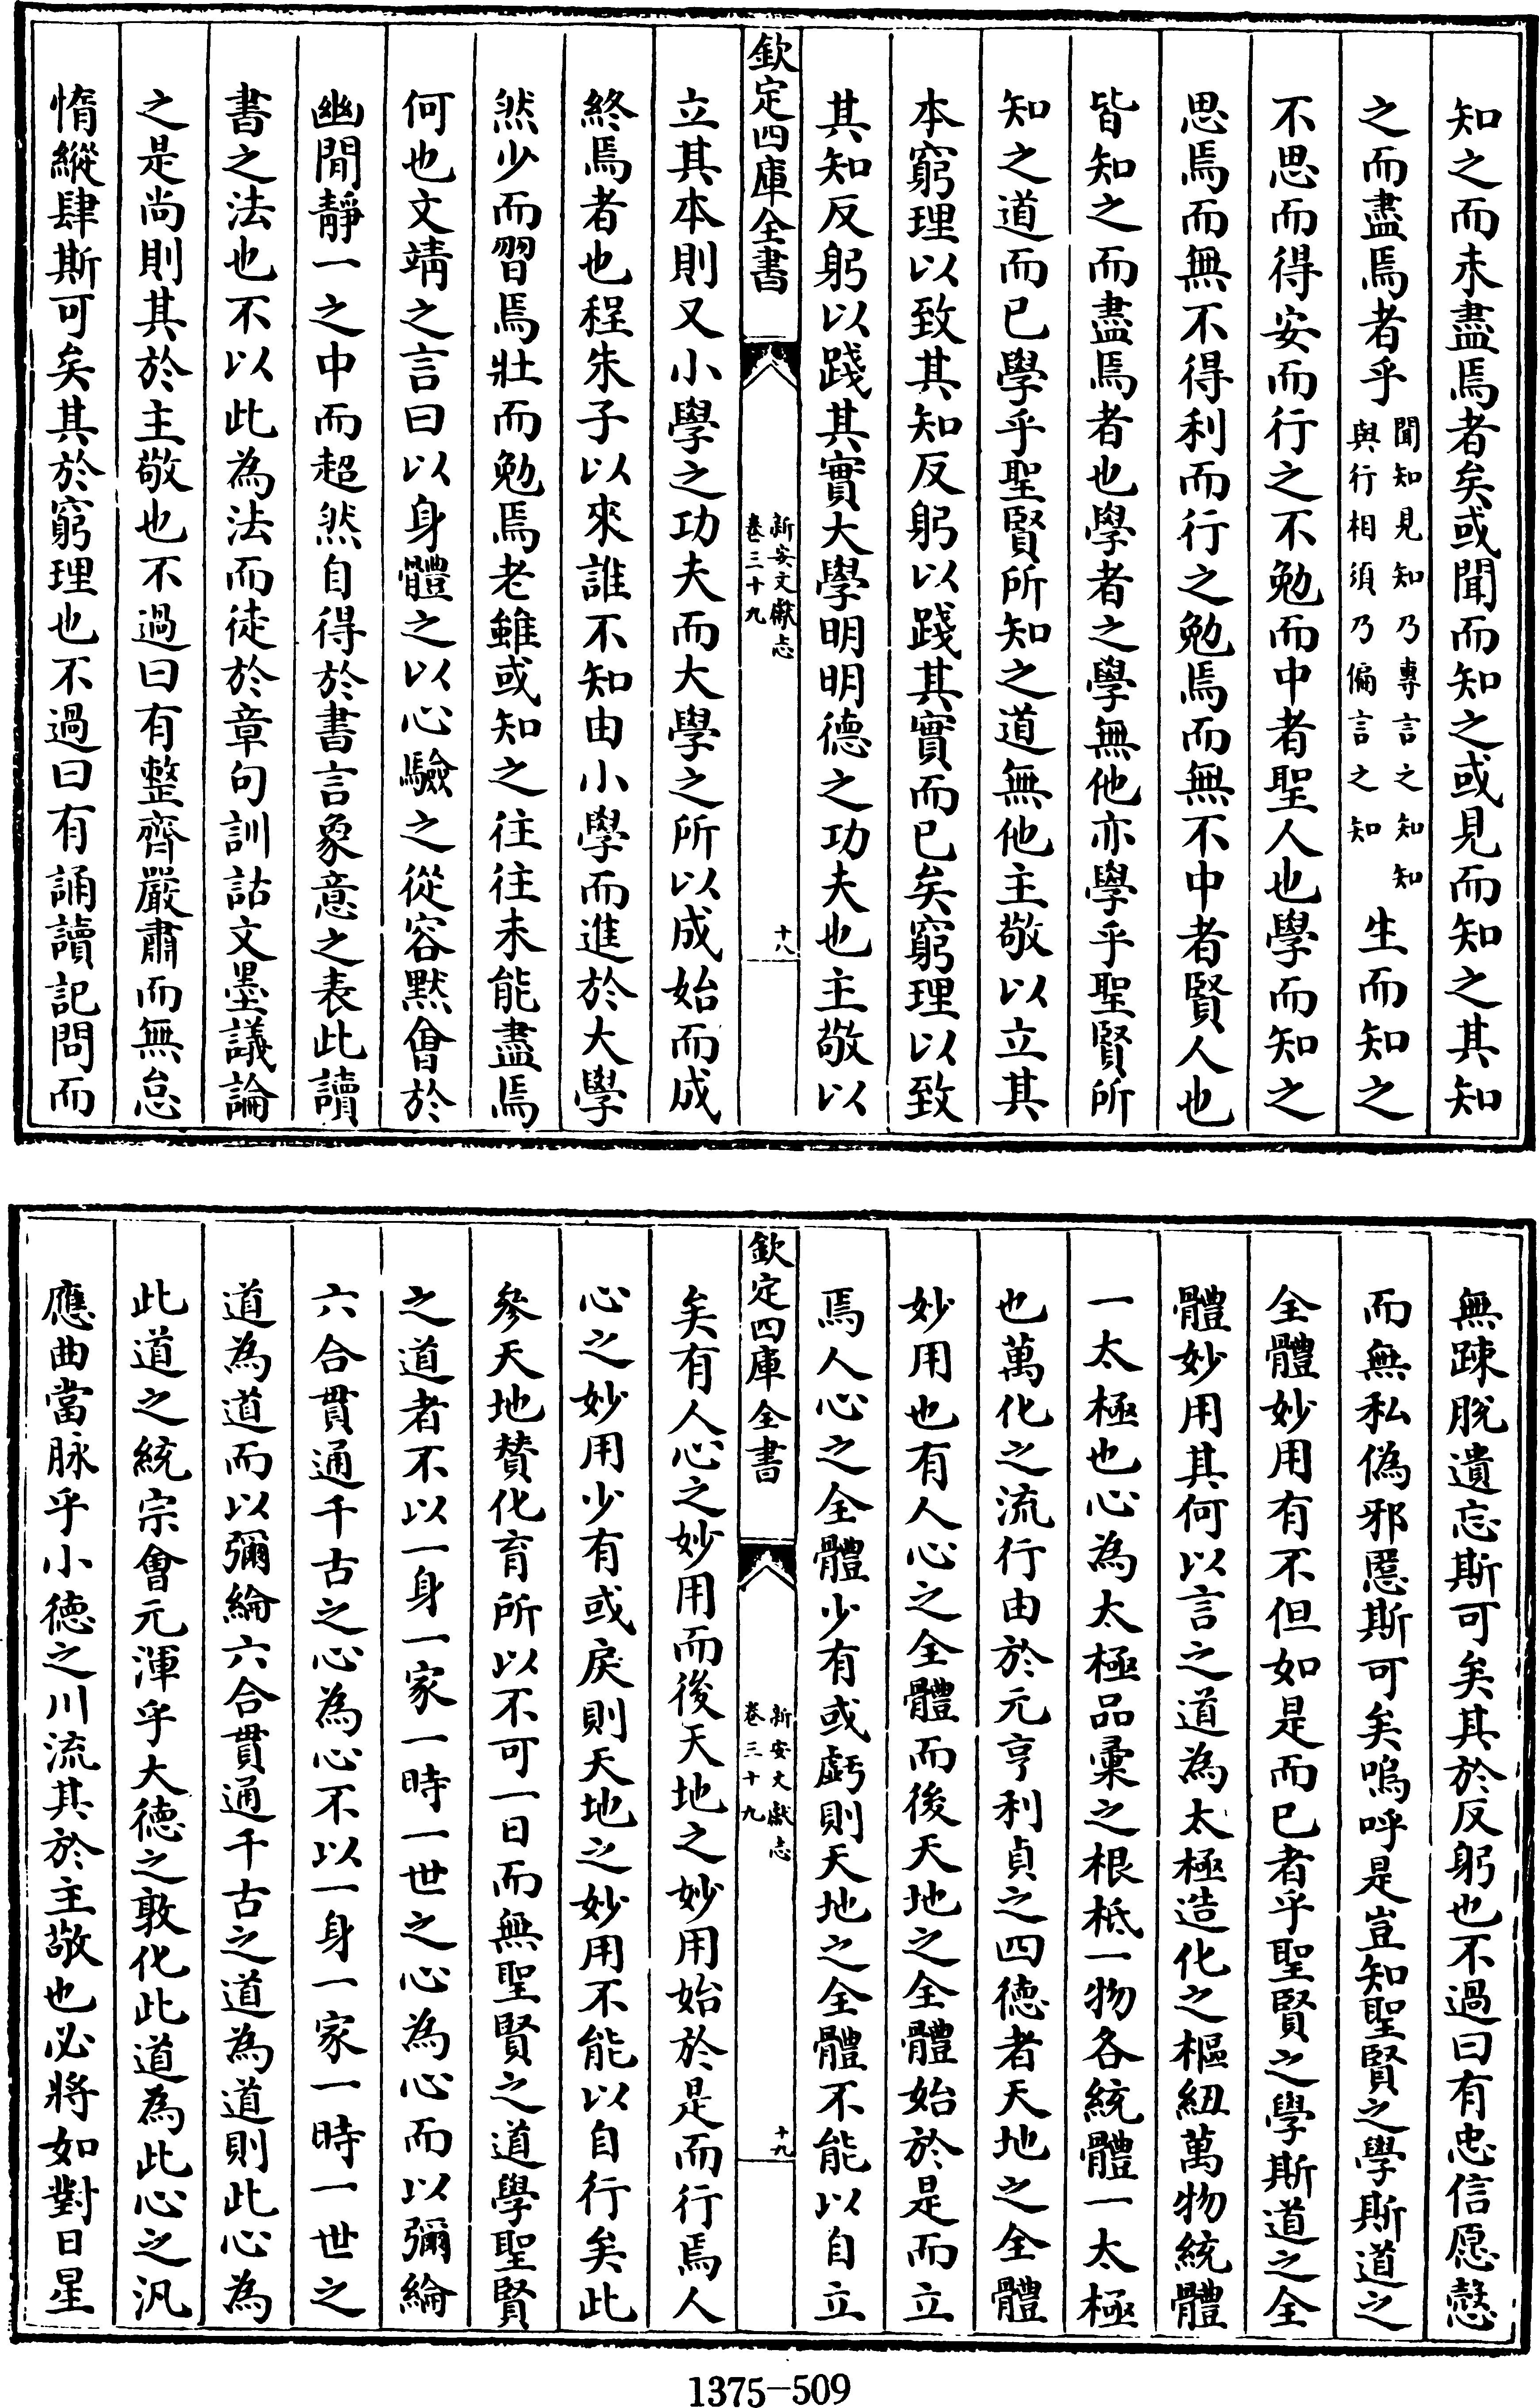 知之而未盡焉者矣或聞而知之或見而知之其知
之而盡焉者乎聞知見知乃專言之知知與行相須乃偏言之知生而知之
不思而得安而行之不勉而中者聖人也學而知之
思焉而無不得利而行之勉焉而無不中者賢人也
皆知之而盡焉者也學者之學無他亦學乎聖賢所
知之道而已學乎聖賢所知之道無他主敬以立其
本窮理以致其知反躬以踐其實而已矣窮理以致
其知反躬以踐其實大學明明德之功夫也主敬以
欽定四庫全書
新安文獻志
卷三十九
十八
立其本則又小學之功夫而大學之所以成始而成
終焉者也程朱子以來誰不知由小學而進於大學
然少而習焉壯而勉焉老雖或知之往往未能盡焉
何也文靖之言曰以身體之以心驗之從容默會於
幽閒靜一之中而超然自得於書言象意之表此讀
書之法也不以此為法而徒於章句訓詁文墨議論
之是尚則其於主敬也不過曰有整齊嚴肅而無怠
惰縱肆斯可矣其於窮理也不過曰有誦讀記問而
無踈脫遺忘斯可矣其於反躬也不過曰有忠信愿慤
而無私偽邪慝斯可矣嗚呼是豈知聖賢之學斯道之
全體妙用有不但如是而已者乎聖賢之學斯道之全
體妙用其何以言之道為太極造化之樞紐萬物統體
一太極也心為太極品彙之根柢一物各統體一太極
也萬化之流行由於元亨利貞之四德者天地之全體
妙用也有人心之全體而後天地之全體始於是而立
焉人心之全體少有或虧則天地之全體不能以自立
欽定四庫全書
新安文獻志
卷三十九
十九
矣有人心之妙用而後天地之妙用始於是而行焉人
心之妙用少有或戾則天地之妙用不能以自行矣此
參天地贊化育所以不可一日而無聖賢之道學聖賢
之道者不以一身一家一時一世之心為心而以彌綸
六合貫通千古之心為心不以一身一家一時一世之
道為道而以彌綸六合貫通千古之道為道則此心為
此道之統宗會元渾乎大德之敦化此道為此心之汎
應曲當脉乎小德之川流其於主敬也必將如對日星
1375-509